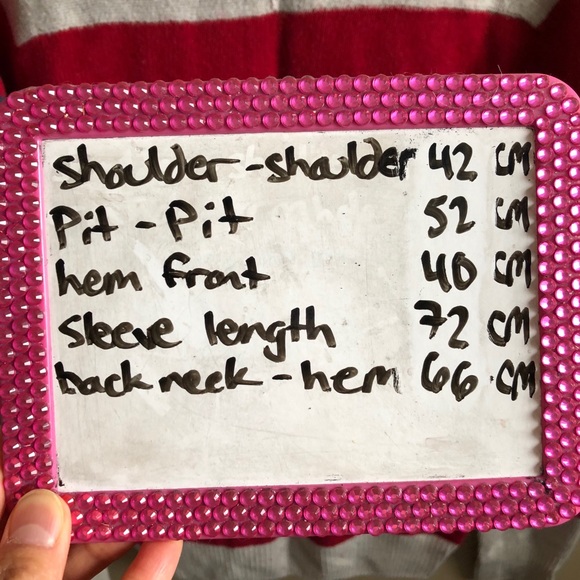 shoulder-shoulder 42 cm
Pit - Pit 52 cm
hem front 40 cm
sleeve length 72 cm
back neck - hem 66 cm